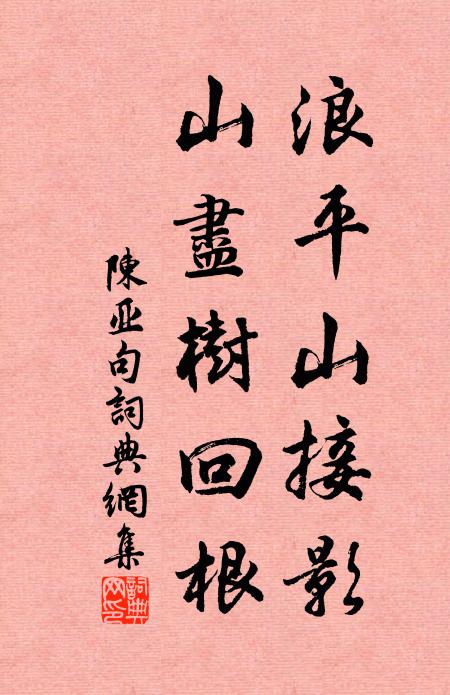 浪平山接影
山盡樹回根
陳亚句詞典網集
詞典网印